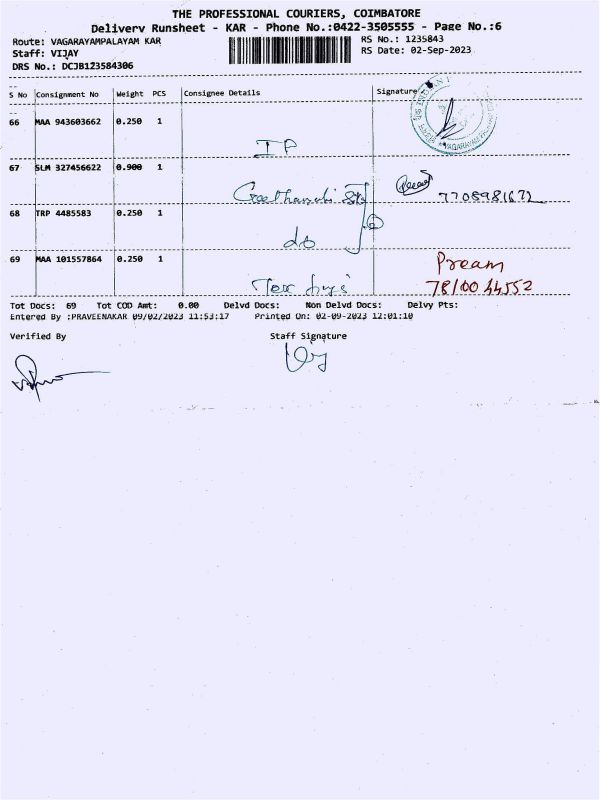 THE PROFESSIONAL COURIERS, COIMBATORE
Delivery Runsheet - KAR - Phone No.:0422-3505555 - Page No.:6
Route: VAGARAYAMPALAYAM KAR
RS No.: 1235843
Staff: VIJAY
RS Date: 02-Sep-2023
DRS No.: DCJB123584306
S No Consignment No Weight PCS Consignee Details Signature
66 MAA 943603662 0.250 1
IP
67 SLM 327456622 0.900 1
7705981672
68 TRP 4485583 0.250 1
do
69 MAA 101557864 0.250 1
Pream
78100 44552
Tot Docs: 69 Tot COD Amt: 0.00 Delvd Docs: Non Delvd Docs: Delvy Pts:
Entered By :PRAVEENAKAR 09/02/2023 11:53:17 Printed On: 02-09-2023 12:01:10
Verified By Staff Signature